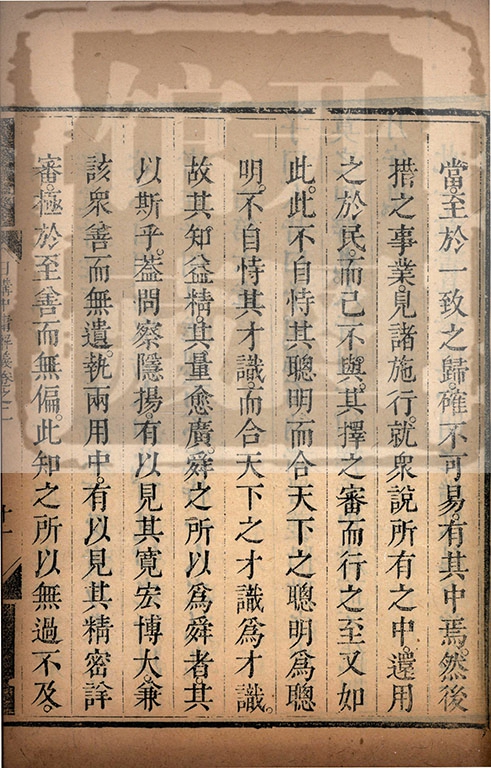 當。至於一致之歸。確不可易。有其中焉。然後
措之事業。見諸施行。就衆說所有之中。還用
之於民。而己不與。其擇之審而行之至又如
此。此不自恃其聰明而合天下之聰明爲聰
明。不自恃其才識。而合天下之才識爲才識。
故其知益精。其量愈廣。舜之所以爲舜者其
以斯乎。葢問察隱揚。有以見其寬宏博大。兼
該衆善而無遺。執兩用中。有以見其精密詳
審。極於至善而無偏。此知之所以無過不及。